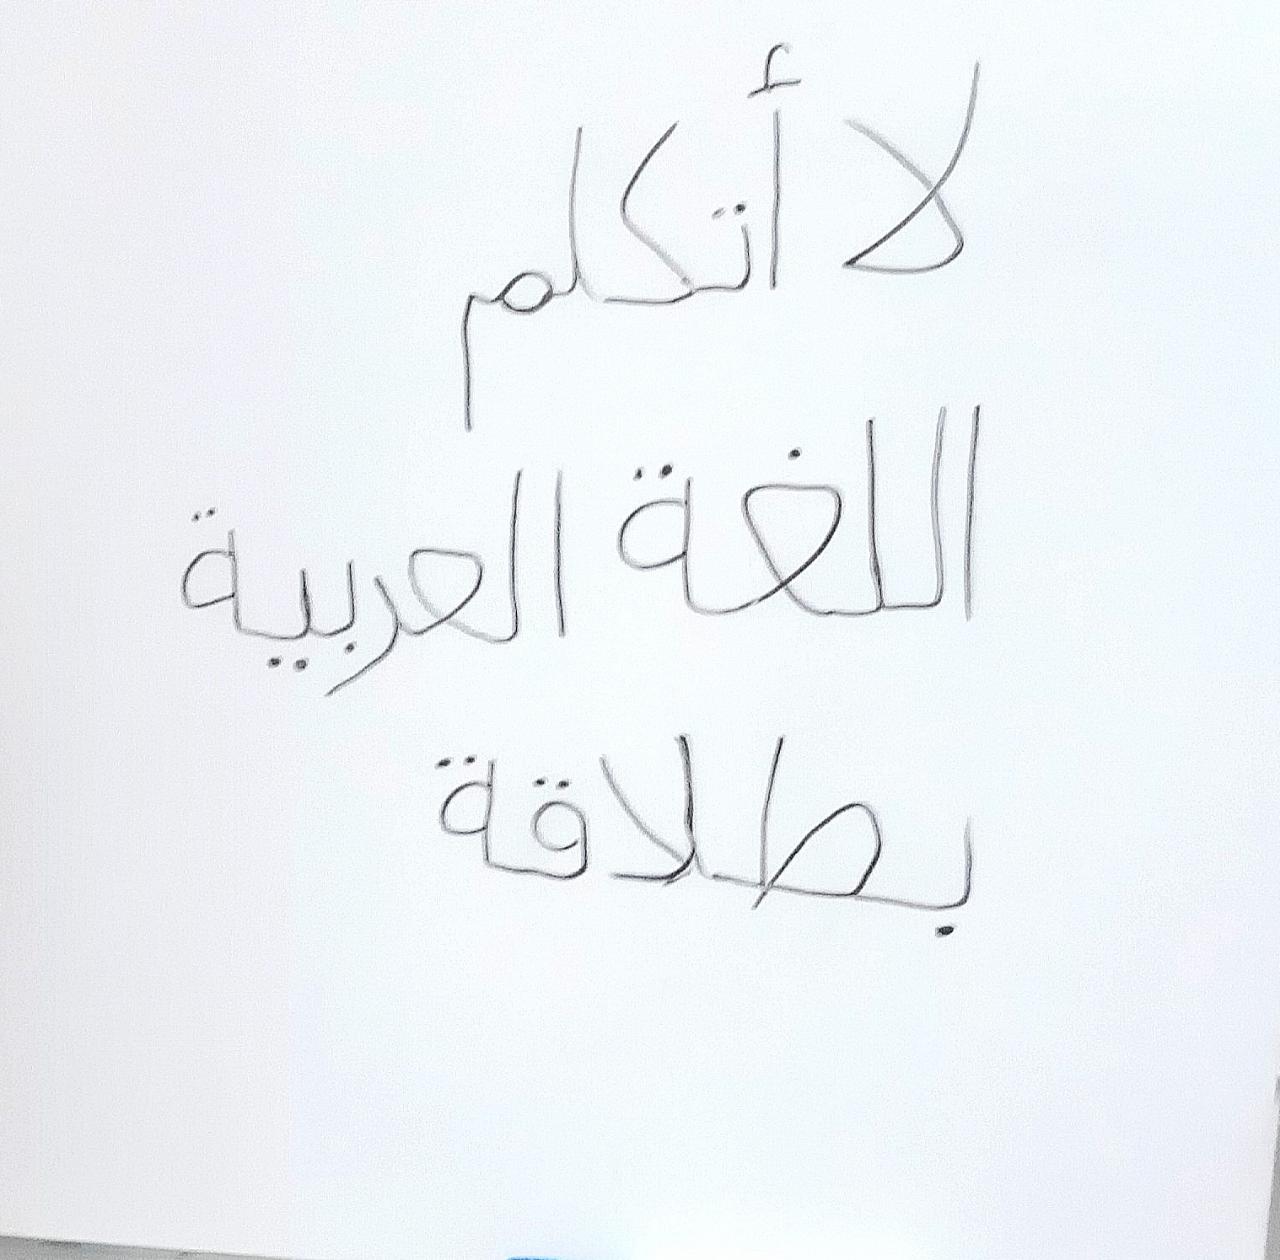 لا أتكلم
اللغة العربية
بطلاقة